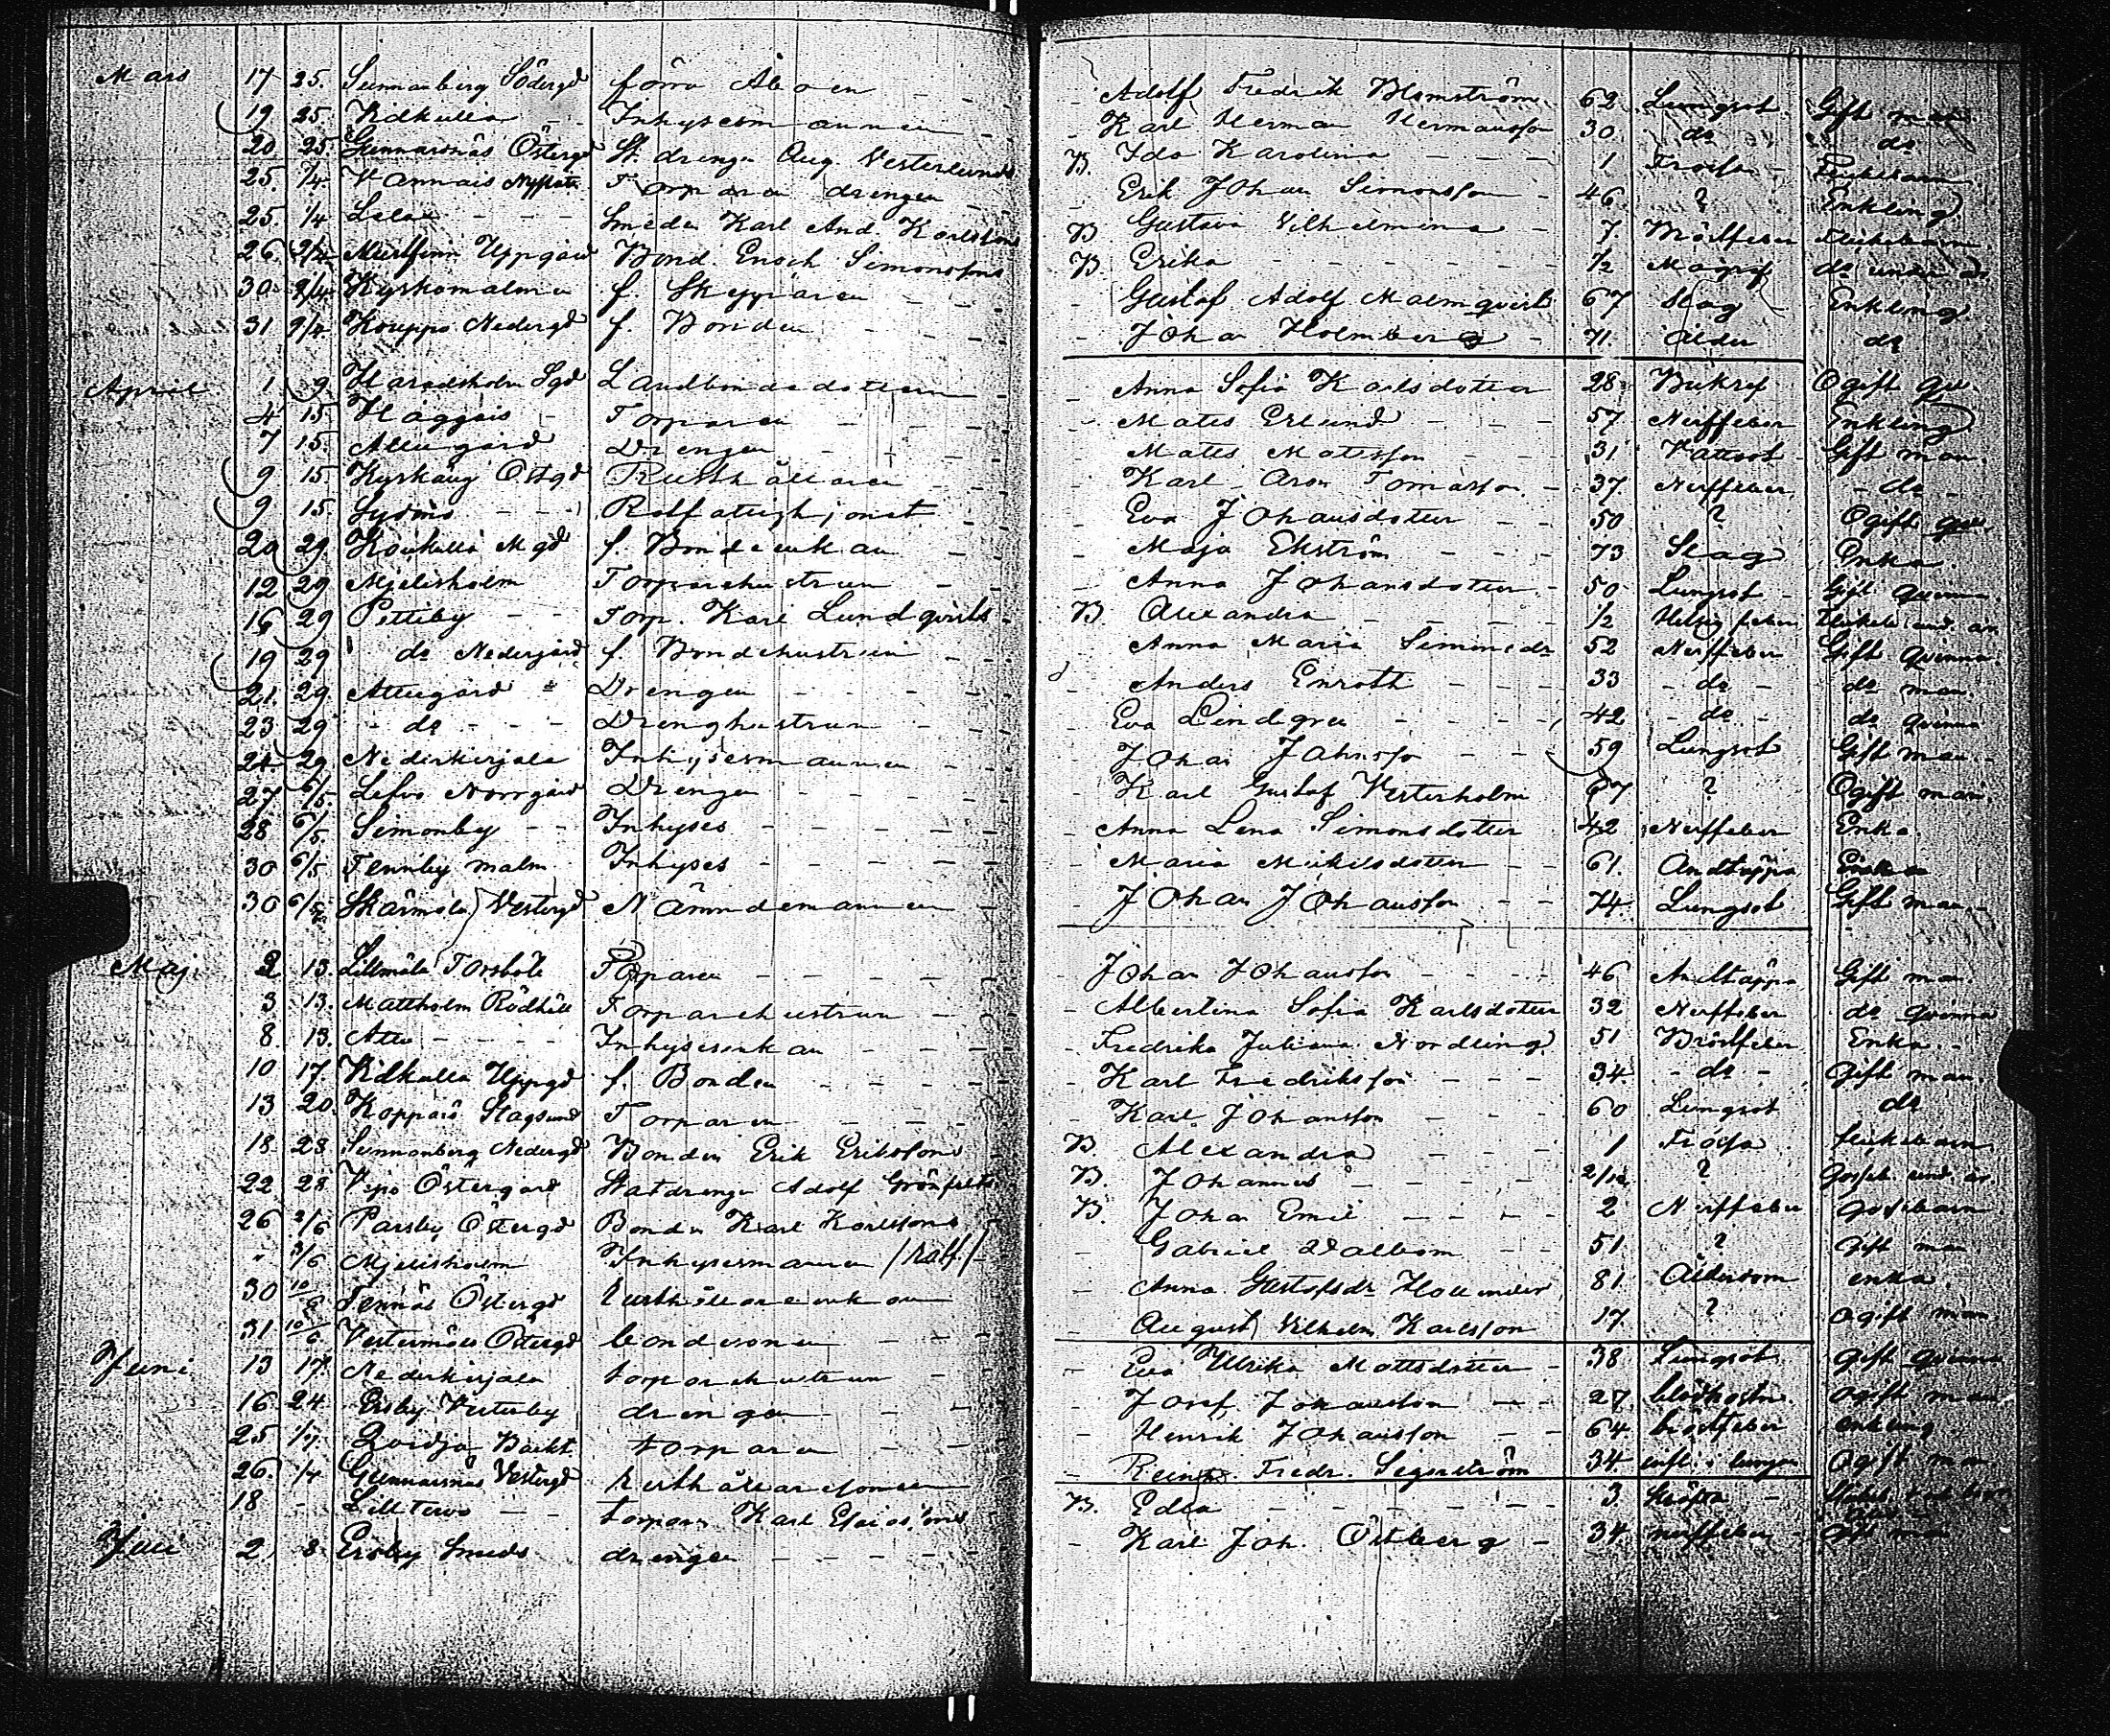 Mars 17 25. Sunnanberg Södergd förra Åboen - - Adolf Fredrik Blomström 62 Lungsot Gift man
19 25. Kdkulla - - Inhysesmannen - - Karl Herman Hermansson 30. do do
20 25. Gunnarsnäs Östergd St. drengn Aug. Vesterlunds B. Ida Karolina - - - 1 Frossa - Flickebarn
25. 7/4. Vannais Torparen drengen - - Erik Johan Simonsson - 46. ? Enkling
25. 1/4 Lelax - - - Smeden Karl And. Karlssons B Gustava Vilhelmina - 7 Bröstfeber Flickebarn
26. 2/4 Uppgård Bond. Enoch Simonssons B. Erika - - - - - - 1/2 Magref do under år
30. 2/4 Kyrkomalmen f. Skepparen - - Gustaf Adolf Malmqvist 67 Slag Enkling
31 9/4. Koupps Nedergd f. Bonden - - - Johan Holmberg - 71. Ålder do
April 1 9. Haradsholm Sgd Landbondedottern - - Anna Sofia Karlsdotter 28 Ogift qv.
4 15 Häggais - Torparen - - - Mats Erlund - - - 57 Nerffeber Enkling
7 15. Attugård Drengen - - - Mats Matsson - - 31 Vattsot Gift man.
9 15. Kyrkäng Östgd Rusthållaren - - Karl Aron Tomasson. - 37. Nerffeber - do -
9 15. Lydens - - - Rotfattighjonet - - Eva Johansdotter - - 50 ? Ogift qv.
20 29. Koukulla Mgd f. Bondeenkan - - Maja Ekström - - - 73 Slag Enka.
12 29 Mjelisholm Torparehustrun - - Anna Johansdotter - 50 Lungsot - Gift qvinna.
16 29 Pettiby - - Torp. Karl Lundqvists - B Alexandra - - - - 1/2 Flickeb. und. år
19 29 do Nedergård f. Bondehustrun - - Anna Maria Simonsdr 52 Nerffeber Gift qvinna.
21. 29. Attugård - Drengen - - - - Anders Enroth - - - 33 - do - do man.
23 29 - do - - - Drenghustrun - - Eva Lindgren - - - - 42 - do - do qvinna
24. 29 Nederkirjala Inhysesmannen - - Johan Johnsson - - 59 Lungsot Gift man.
27 6/5. Lefvo Norrgård Drengen - - - - Karl Gustaf Vesterholm 67 ? Ogift man.
28 6/5. Simonby - - Inhyses - - - - - Anna Lena Simonsdotter 42 Nerffeber Enka.
30 6/5 Tennby malm Inhyses - - - - - Maria Mickelsdotter - - 61. Andtäppa Enka
30 6/5 Skärmola Vestergd Nämndemannen - - Johan Johansson - - 74. Lungsot Gift man.
Maj. 2 13. Lillmälö Torsholt Torparen - - - - Johan Johansson - - - - 46 Andtäppa Gift man.
3. 13. Mattholm Rödhäll Torparehustrun - - Albertina Sofia Karlsdotter 32 Nerffeber do qvinna
8. 13. Attu - - - - Inhysesenkan - - - Fredrika Juliana Nordling. 51 Bröstfeber Enka. -
10 17. Kdkulla Uppgd f. Bonden - - - Karl Fredriksson - - - 34. - do - Gift man.
13 20. Koppars Slagsund Torparen - - - Karl Johansson - - - 60 Lungsot do
18 28 Sunnanberg Nedergd Bonden Erik Erikssons B. Alexandra - - - - 1 Frossa flickebarn
22 28 Vepo Östergård Statdrengn Adolf Grönfelts B. Johannes - - - - 2/12 ? Gosseb. und. år.
26 2/6 Parsby Östergd Bonden Karl Karlssons - B. Johan Emil - - - - 2 Nerffeber gossebarn
" 3/6 Mjelisholm Inhysesmannen /rotf/ - Gabriel Valbom - - 51. ? gift man
30 10/6 Tennäs Östergd Rusthållareenkan - Anna Gustafsdr Hollender 81. Ålderdom enka.
31 10/6. Vestermälö Östergd bondesonen - - - August Vilhelm Karlsson 17. ? ogift man
Juni 13 17. Nederkirjala torparehustrun - - Eva Ulrika Mattsdotter - 38 Lungsot gift qvinna
16. 24 Ersby Vesterby drengen - - - Josef Johansson - - 27. blodhosta. ogift man
25 1/7. Qvidja torparen - - - Henrik Johansson - - 64 bröstfeber enkling
26. 1/4 Gunnarsnäs Vestergd Rusthållaresonen - Reinh. Fredr. Segerström 34. infl. i lungan Ogift man
18 - Lilltervo - torparen Karl B. Edla - - - - - - 3. -
Juli 2 8. Ersby Smeds drengen - - - - - - Karl Joh. Östberg - 34. nerffeber - gift man